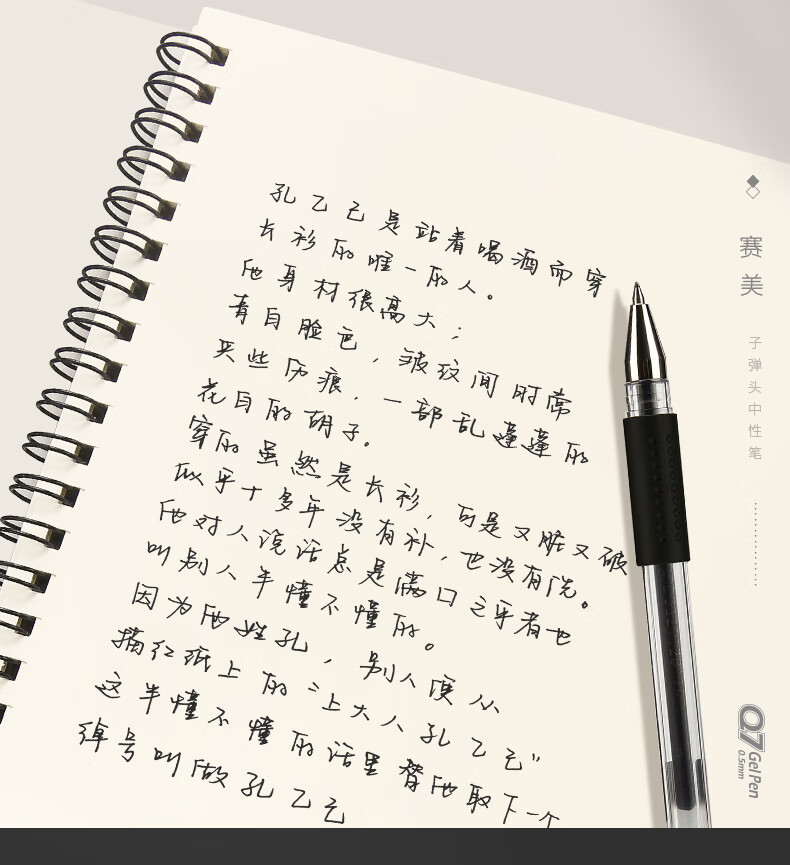 孔乙己是站着喝酒而穿
长衫的唯一的人。
他身材很高大；
青白脸色，皱纹间时常
夹些伤痕，一部乱蓬蓬的
花白的胡子。
穿的虽然是长衫，可是又脏又破
似乎十多年没有补，也没有洗。
他对人说话总是满口之乎者也
叫别人半懂不懂的。
因为他姓孔，别人便从
描红纸上的“上大人孔乙己”
这半懂不懂的话里替他取下一个
绰号叫做孔乙己
赛美
子弹头中性笔
Q7
Gel Pen
0.5mm